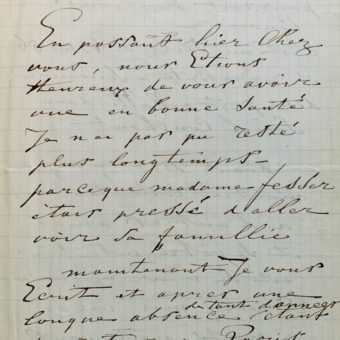 En passant hier Chez
vous, nous Etions
Heureux de vous avoir
vue en bonne Santé
Je nai pas pu resté
plus longtemps
parceque madame fesser
etais pressé daller
voir sa famillie
maintenant Je vous
Ecrit et apres une
de tant dannees
longue absence